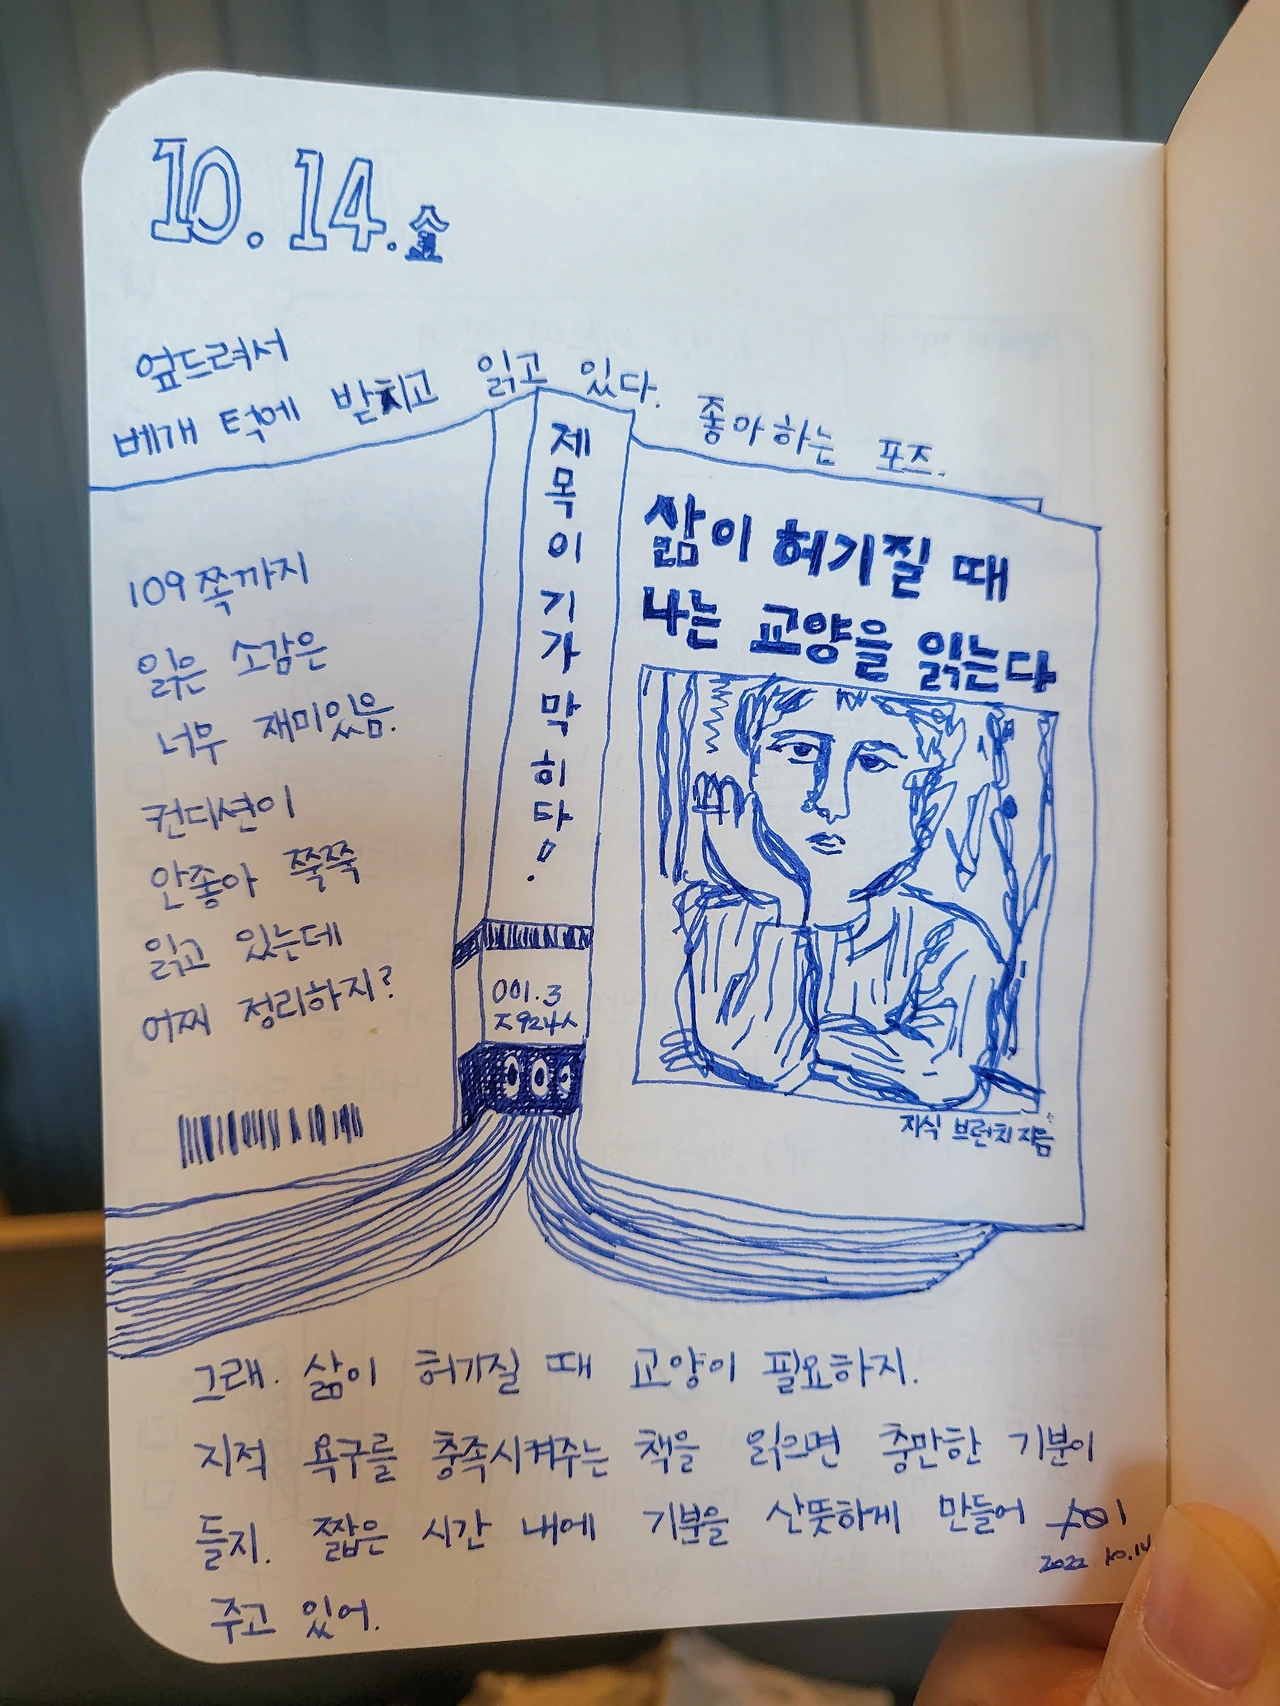 10. 14. 金
엎드려서
베개 턱에 받치고 읽고 있다. 좋아하는 포즈.
109쪽까지
읽은 소감은
너무 재미있음.
컨디션이
안좋아 쭉쭉
읽고 있는데
어찌 정리하지?
제목이 기가 막히다!
001.3
ㅈ924ㅅ
000
삶이 허기질 때
나는 교양을 읽는다
지식 브런치 지음
그래. 삶이 허기질 때 교양이 필요하지.
지적 욕구를 충족시켜주는 책을 읽으면 충만한 기분이
들지. 짧은 시간 내에 기분을 산뜻하게 만들어
주고 있어.
2022 10.14